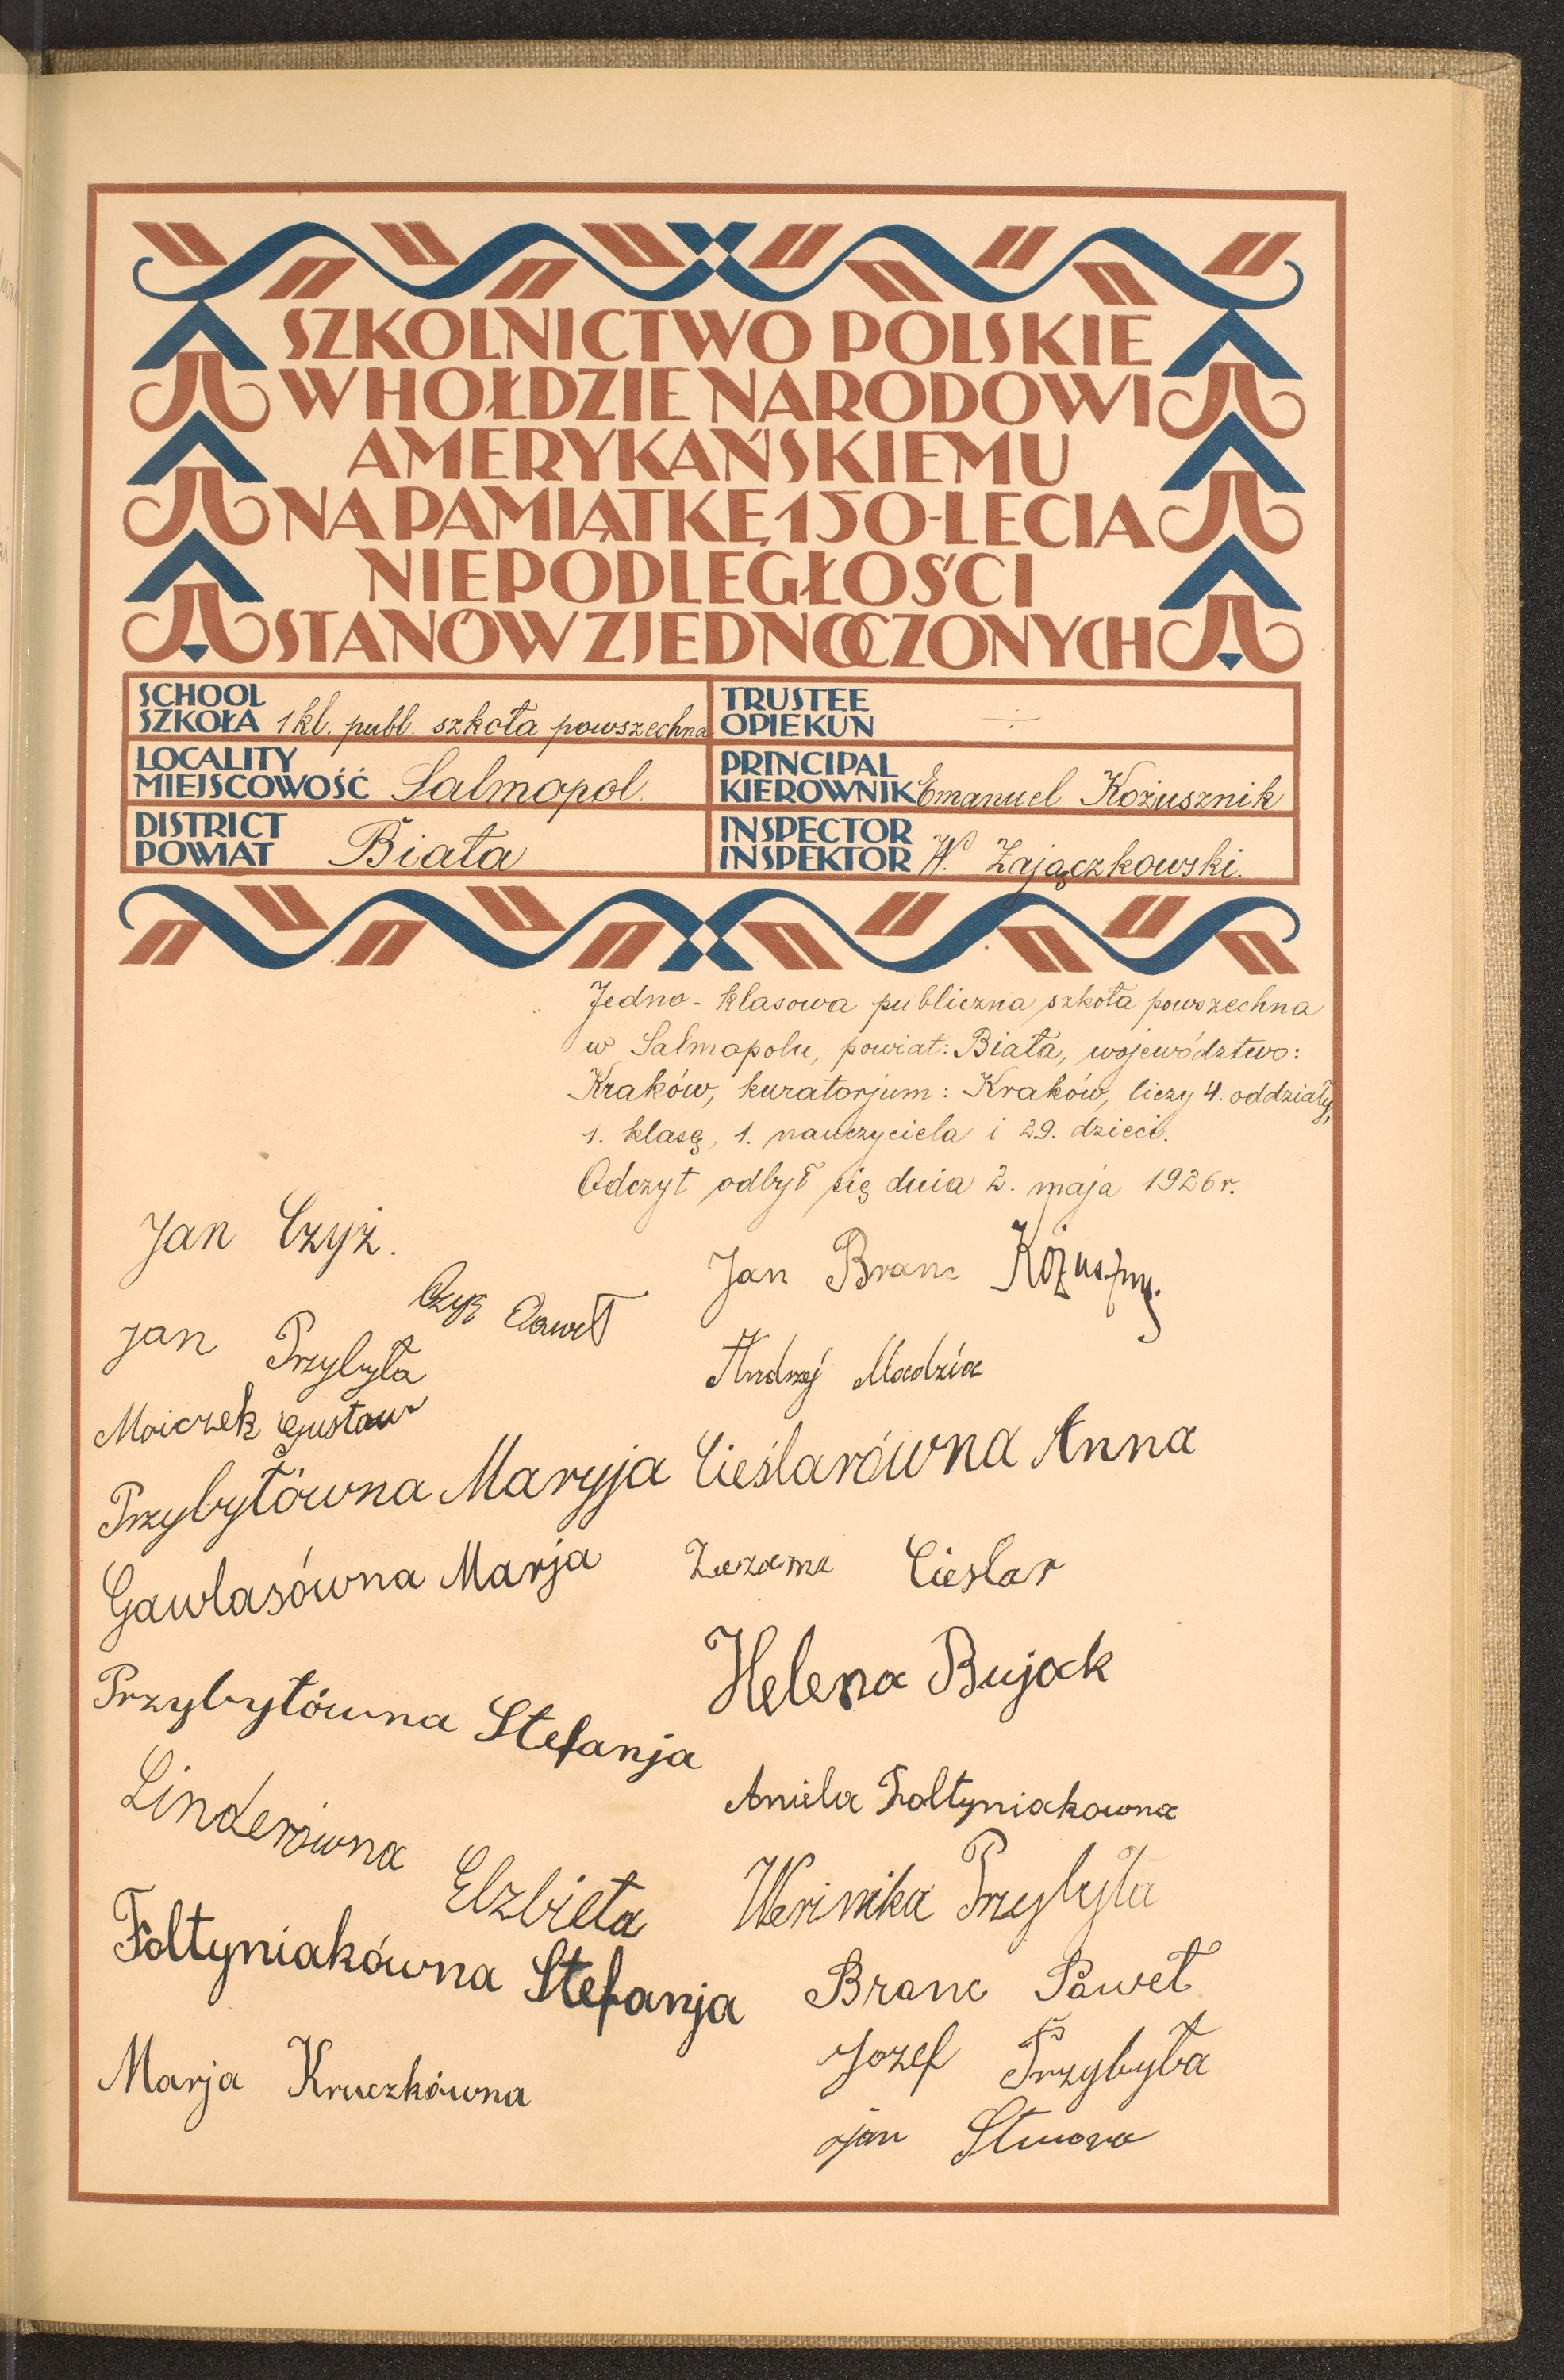 SZKOLNICTWO POLSKIE
W HOŁDZIE NARODOWI
AMERYKAŃSKIEMU
NA PAMIĄTKĘ 150-LECIA
NIEPODLEGŁOŚCI
STANÓW ZJEDNOCZONYCH
SCHOOL
SZKOŁA 1 kl. publ. szkoła powszechna
TRUSTEE
OPIEKUN
LOCALITY
MIEJSCOWOŚĆ Salmopol.
PRINCIPAL
KIEROWNIK Emanuel Kożusznik
DISTRICT
POWIAT Biała
INSPECTOR
INSPEKTOR W. Zajączkowski.
Jedno-klasowa publiczna szkoła powszechna
w Salmopolu, powiat: Biała, województwo:
Kraków, kuratorjum: Kraków, liczy 4. oddziały,
1. klasę, 1. nauczyciela i 29. dzieci.
Odczyt odbył się dnia 2. maja 1926 r.
Jan Czyż.
Czyż Paweł
Jan Przybyła
Moiczek Gustaw
Przybyłówna Maryja
Gawlasówna Marja
Przybyłówna Stefanja
Linderówna Elzbieta
Foltyniakówna Stefanja
Marja Kruczkówna
Jan Branc
Andrzej Madzia
Cieślarówna Anna
Zuzanna Cieslar
Helena Bujok
Aniela Foltyniakowna
Przybyła
Branc Paweł
Jozef Przybyła
Jan